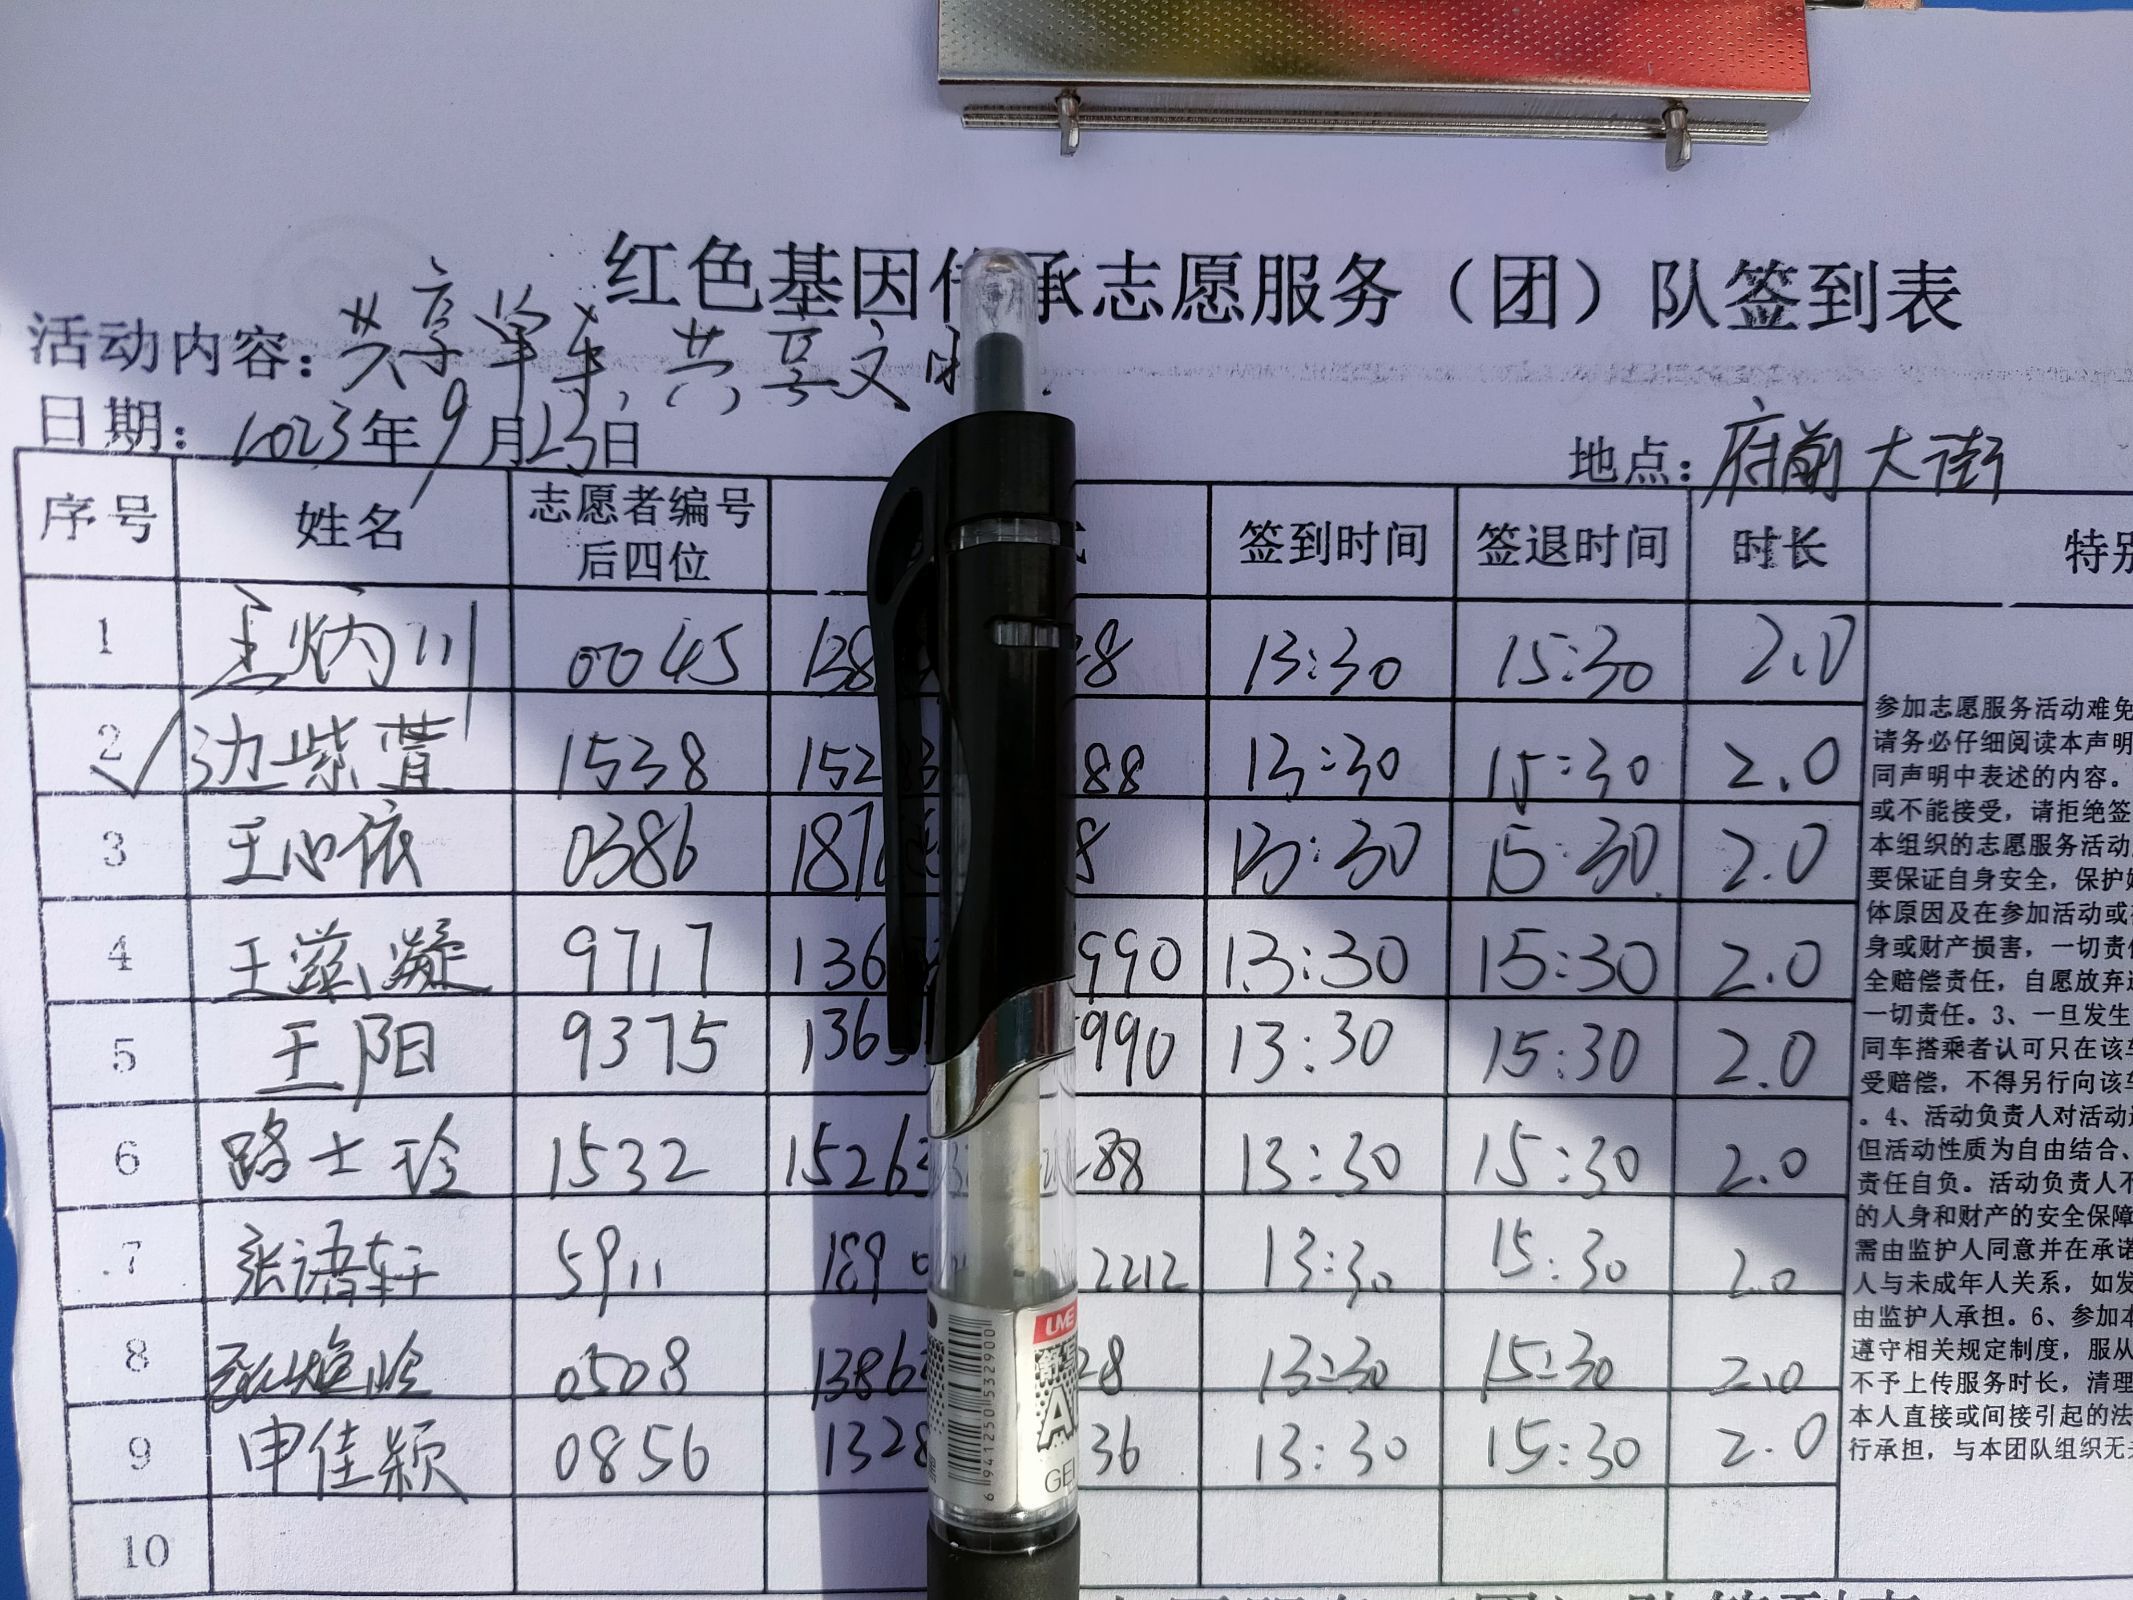 红色基因传承志愿服务（团）队签到表
活动内容：共享单车，共享文明
日期：2023年9月23日
地点：府前大街
序号 姓名 志愿者编号后四位 签到时间 签退时间 时长
1 0045 138 8 13:30 15:30 2.0
2 边紫萱 1538 152 88 13:30 15:30 2.0
3 王心依 0386 187 8 13:30 15:30 2.0
4 王 凝 9717 136 990 13:30 15:30 2.0
5 王阳 9375 136 990 13:30 15:30 2.0
6 路士玲 1532 1526 88 13:30 15:30 2.0
7 张语轩 5911 189 2212 13:30 15:30 2.0
8 0508 1386 28 13:30 15:30 2.0
9 申佳颖 0856 1328 36 13:30 15:30 2.0
10
参加志愿服务活动难免
请务必仔细阅读本声明
同声明中表述的内容。
或不能接受，请拒绝签
本组织的志愿服务活动
要保证自身安全，保护
体原因及在参加活动或
身或财产损害，一切责任
全赔偿责任，自愿放弃
一切责任。3、一旦发生
同车搭乘者认可只在该车
受赔偿，不得另行向该车
。4、活动负责人对活动
但活动性质为自由结合、
责任自负。活动负责人不
的人身和财产的安全保障
需由监护人同意并在承诺
人与未成年人关系，如发
由监护人承担。6、参加本
遵守相关规定制度，服从
不予上传服务时长，清理
本人直接或间接引起的法
行承担，与本团队组织无
UME
GEL
6 941250 532900